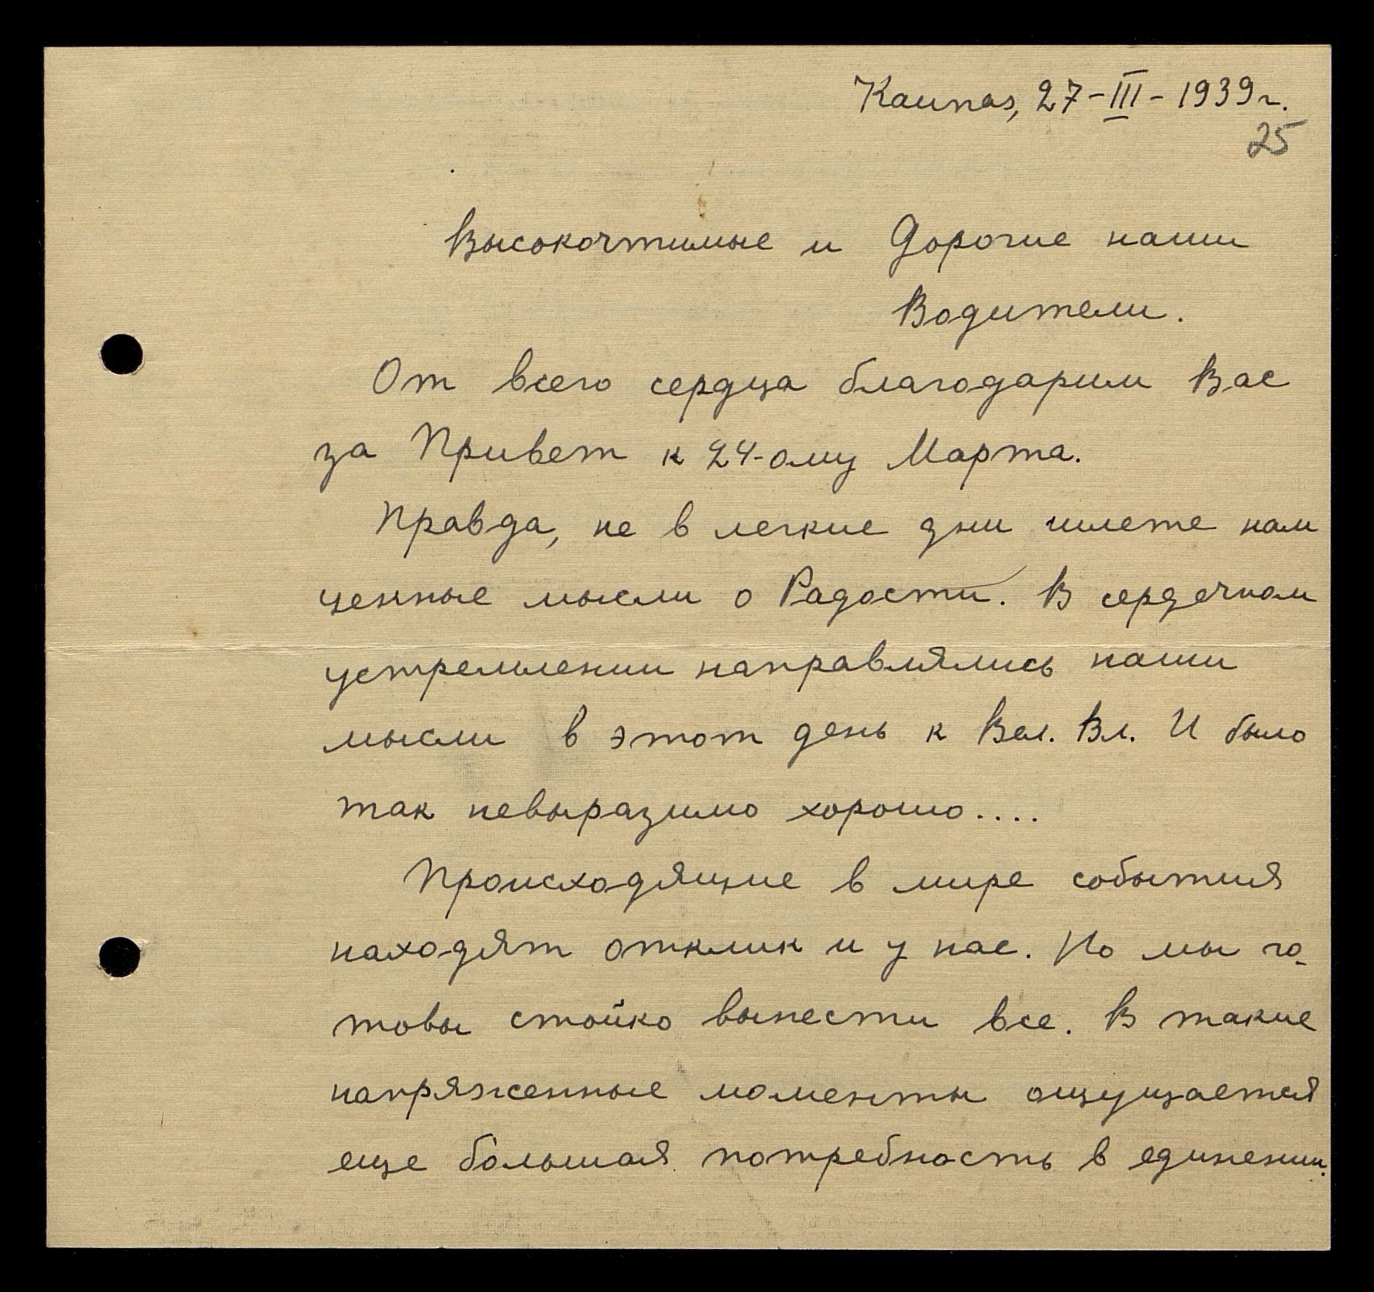 Kaunas, 27-III-1939 г.
25
Высокочтимые и Дорогие наши
Водители.
От всего сердца благодарим Вас
за Привет к 24-ому Марта.
Правда, не в легкие дни шлете нам
ценные мысли о Радости. В сердечном
устремлении направлялись наши
мысли в этот день к Вел. Вл. И было
так невыразимо хорошо....
Происходящие в мире события
находят отклик и у нас. Но мы го-
товы стойко вынести все. В такие
напряженные моменты ощущается
еще большая потребность в единении.